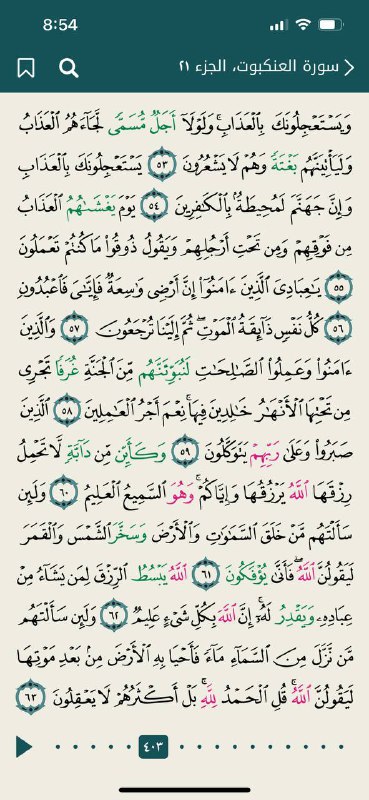 8:54
سورة العنكبوت، الجزء ٢١
وَيَسْتَعْجِلُونَكَ بِالْعَذَابِ ۚ وَلَوْلَا أَجَلٌ مُّسَمًّى لَّجَاءَهُمُ الْعَذَابُ
وَلَيَأْتِيَنَّهُم بَغْتَةً وَهُمْ لَا يَشْعُرُونَ ٥٣ يَسْتَعْجِلُونَكَ بِالْعَذَابِ
وَإِنَّ جَهَنَّمَ لَمُحِيطَةٌ بِالْكَٰفِرِينَ ٥٤ يَوْمَ يَغْشَىٰهُمُ الْعَذَابُ
مِن فَوْقِهِمْ وَمِن تَحْتِ أَرْجُلِهِمْ وَيَقُولُ ذُوقُوا مَا كُنتُمْ تَعْمَلُونَ
٥٥ يَٰعِبَادِيَ الَّذِينَ ءَامَنُوا إِنَّ أَرْضِي وَٰسِعَةٌ فَإِيَّٰيَ فَاعْبُدُونِ
٥٦ كُلُّ نَفْسٍ ذَائِقَةُ الْمَوْتِ ۖ ثُمَّ إِلَيْنَا تُرْجَعُونَ ٥٧ وَالَّذِينَ
ءَامَنُوا وَعَمِلُوا الصَّٰلِحَٰتِ لَنُبَوِّئَنَّهُم مِّنَ الْجَنَّةِ غُرَفًا تَجْرِي
مِن تَحْتِهَا الْأَنْهَٰرُ خَٰلِدِينَ فِيهَا ۚ نِعْمَ أَجْرُ الْعَٰمِلِينَ ٥٨ الَّذِينَ
صَبَرُوا وَعَلَىٰ رَبِّهِمْ يَتَوَكَّلُونَ ٥٩ وَكَأَيِّن مِّن دَابَّةٍ لَّا تَحْمِلُ
رِزْقَهَا اللَّهُ يَرْزُقُهَا وَإِيَّاكُمْ ۚ وَهُوَ السَّمِيعُ الْعَلِيمُ ٦٠ وَلَئِن
سَأَلْتَهُم مَّنْ خَلَقَ السَّمَٰوَٰتِ وَالْأَرْضَ وَسَخَّرَ الشَّمْسَ وَالْقَمَرَ
لَيَقُولُنَّ اللَّهُ ۖ فَأَنَّىٰ يُؤْفَكُونَ ٦١ اللَّهُ يَبْسُطُ الرِّزْقَ لِمَن يَشَاءُ مِنْ
عِبَادِهِ وَيَقْدِرُ لَهُ ۚ إِنَّ اللَّهَ بِكُلِّ شَيْءٍ عَلِيمٌ ٦٢ وَلَئِن سَأَلْتَهُم
مَّن نَّزَّلَ مِنَ السَّمَاءِ مَاءً فَأَحْيَا بِهِ الْأَرْضَ مِن بَعْدِ مَوْتِهَا
لَيَقُولُنَّ اللَّهُ ۚ قُلِ الْحَمْدُ لِلَّهِ ۚ بَلْ أَكْثَرُهُمْ لَا يَعْقِلُونَ ٦٣
٤٠٣